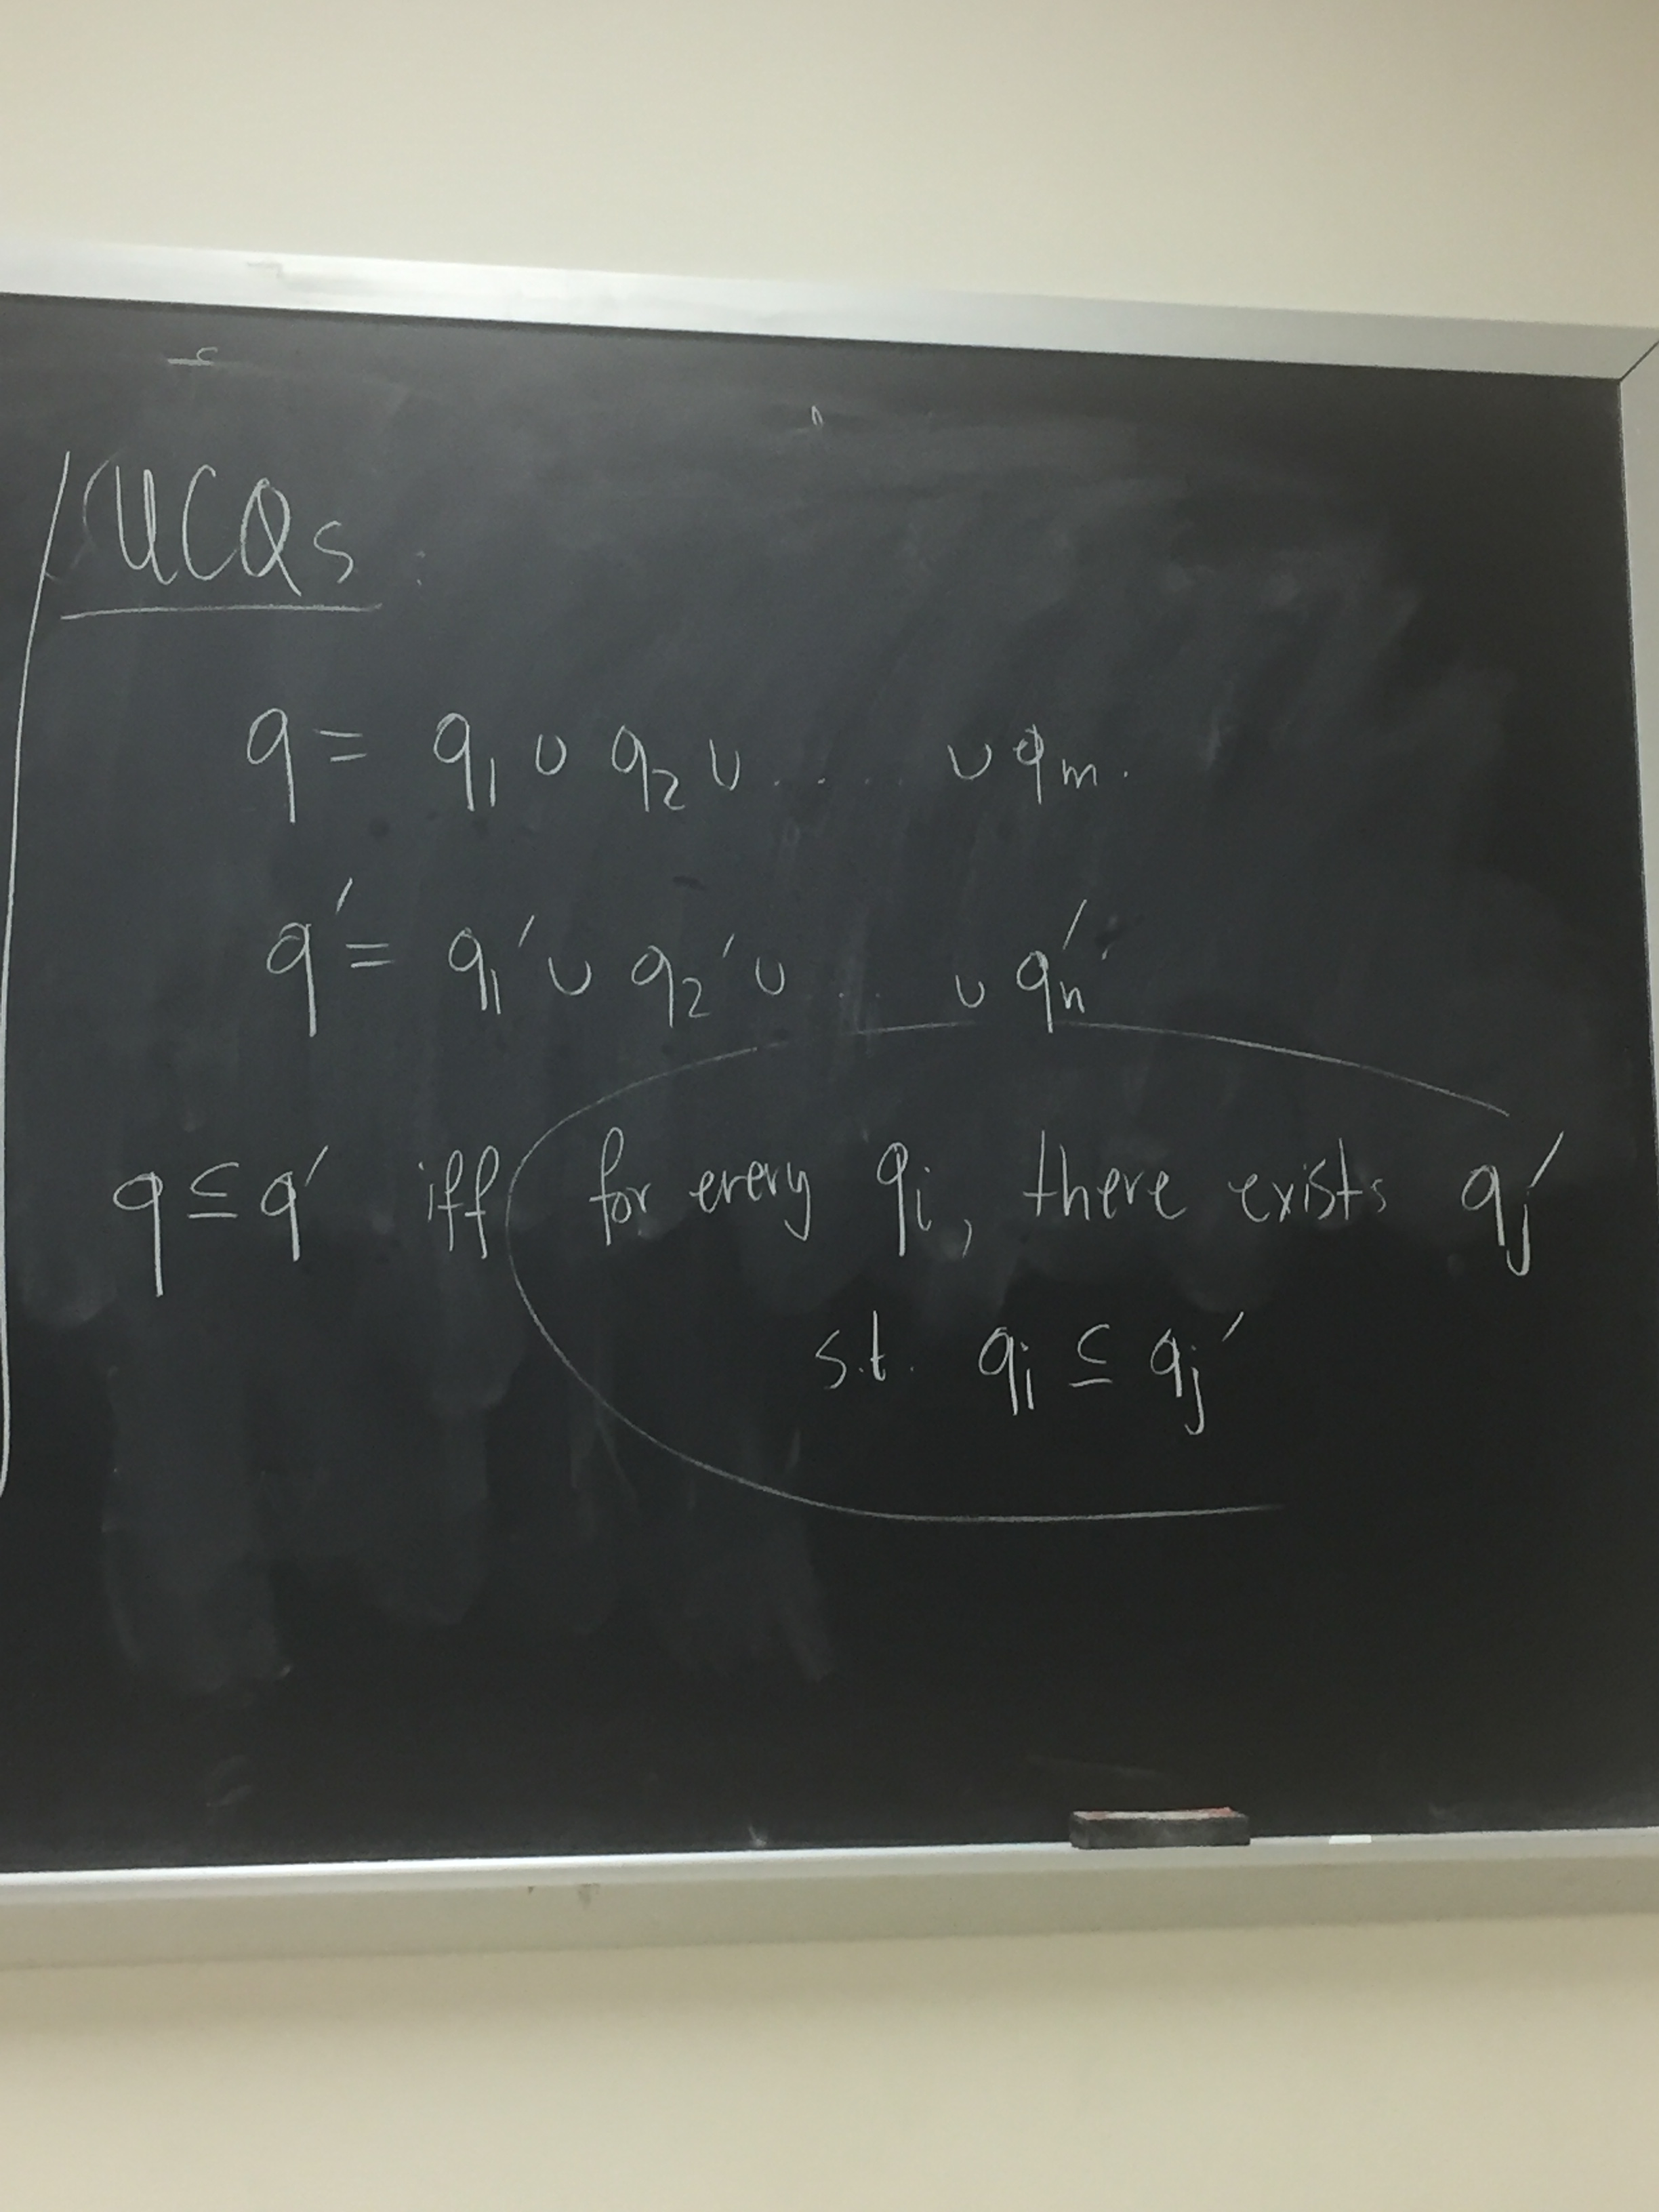 UCQs.
q = q₁ ∪ q₂ ∪ ..... ∪ qm.
q′ = q₁′ ∪ q₂′ ∪ ... ∪ qn′
q ⊆ q′ iff for every qi, there exists qj′
s.t. qi ⊆ qj′